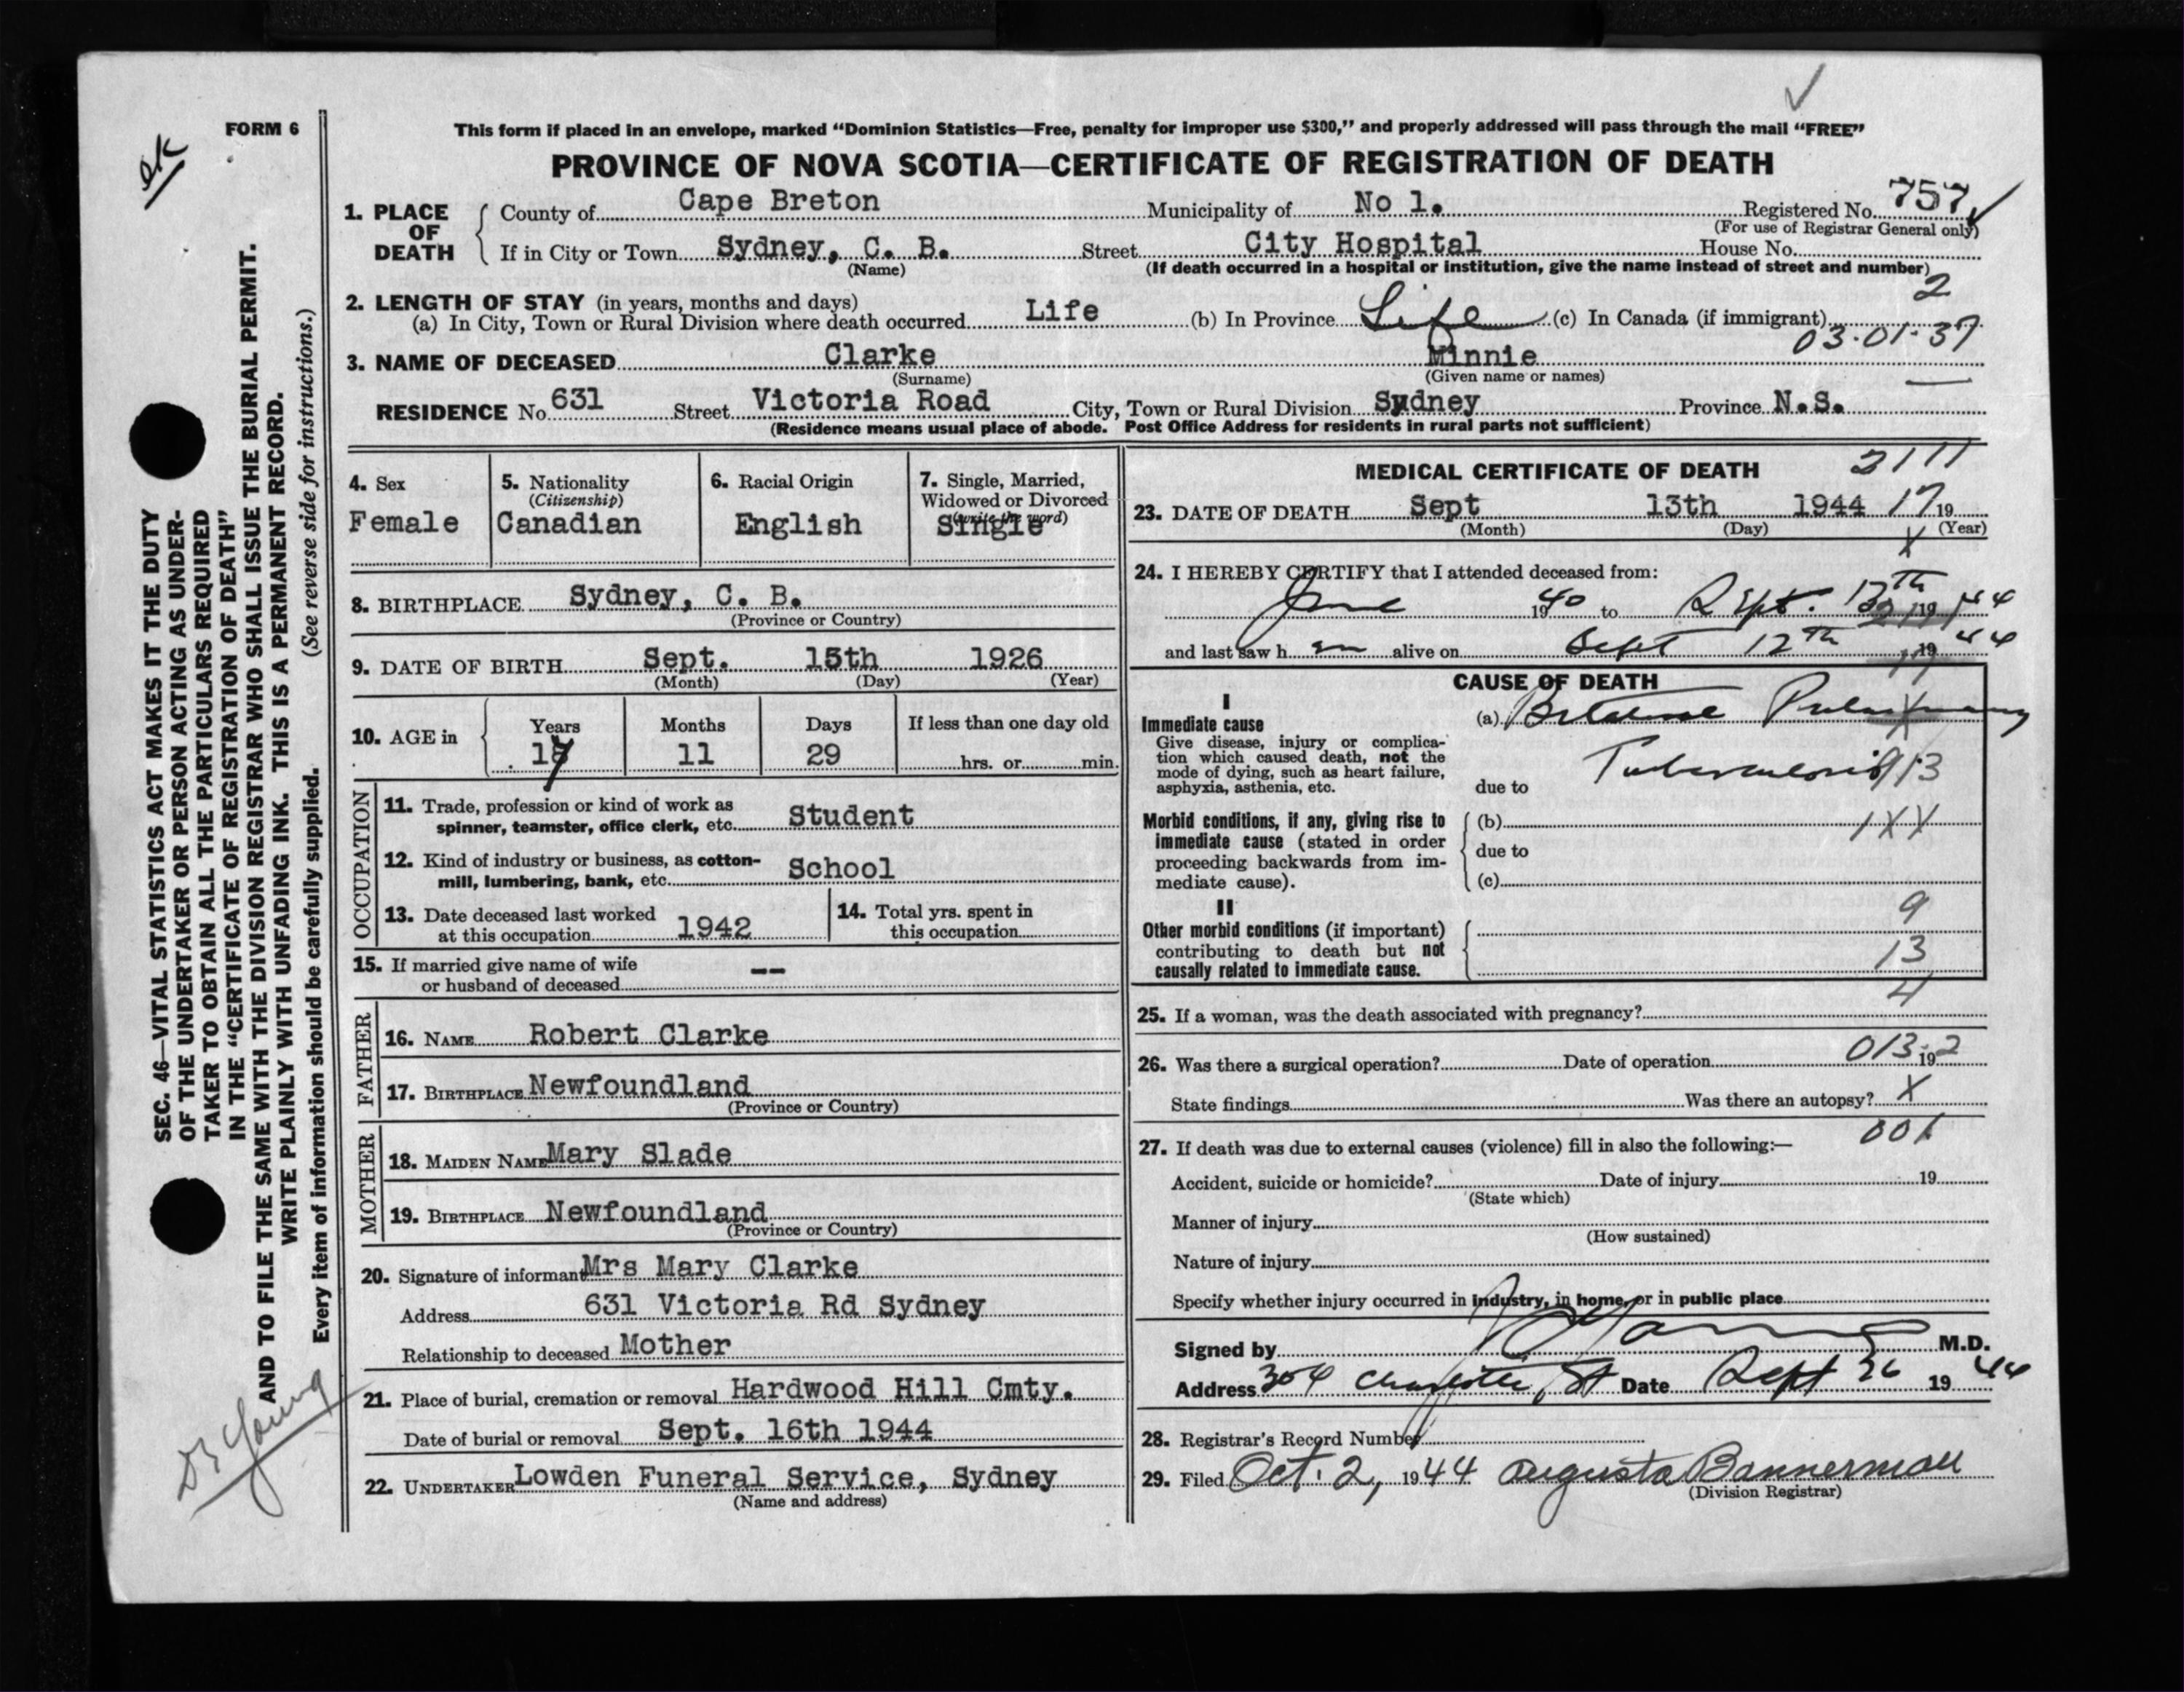 FORM 6
ok
This form if placed in an envelope, marked “Dominion Statistics—Free, penalty for improper use $300,” and properly addressed will pass through the mail “FREE”
PROVINCE OF NOVA SCOTIA—CERTIFICATE OF REGISTRATION OF DEATH
1. PLACE OF DEATH
County of Cape Breton Municipality of No 1. Registered No. 757
(For use of Registrar General only)
If in City or Town Sydney, C. B. Street City Hospital House No.
(Name) (If death occurred in a hospital or institution, give the name instead of street and number)
2
2. LENGTH OF STAY (in years, months and days)
(a) In City, Town or Rural Division where death occurred Life (b) In Province Life (c) In Canada (if immigrant)
03-01-37
3. NAME OF DECEASED Clarke Minnie
(Surname) (Given name or names)
RESIDENCE No. 631 Street Victoria Road City, Town or Rural Division Sydney Province N.S.
(Residence means usual place of abode. Post Office Address for residents in rural parts not sufficient)
4. Sex
Female
5. Nationality
(Citizenship)
Canadian
6. Racial Origin
English
7. Single, Married,
Widowed or Divorced
(write the word)
Single
8. BIRTHPLACE Sydney, C. B.
(Province or Country)
9. DATE OF BIRTH Sept. 15th 1926
(Month) (Day) (Year)
10. AGE in
Years Months Days If less than one day old
17 11 29 hrs. or min.
OCCUPATION
11. Trade, profession or kind of work as
spinner, teamster, office clerk, etc. Student
12. Kind of industry or business, as cotton-
mill, lumbering, bank, etc. School
13. Date deceased last worked
at this occupation 1942
14. Total yrs. spent in
this occupation
15. If married give name of wife
or husband of deceased --
FATHER
16. NAME Robert Clarke
17. BIRTHPLACE Newfoundland
(Province or Country)
MOTHER
18. MAIDEN NAME Mary Slade
19. BIRTHPLACE Newfoundland
(Province or Country)
20. Signature of informant Mrs Mary Clarke
Address 631 Victoria Rd Sydney
Relationship to deceased Mother
21. Place of burial, cremation or removal Hardwood Hill Cmty.
Date of burial or removal Sept. 16th 1944
22. UNDERTAKER Lowden Funeral Service, Sydney
(Name and address)
MEDICAL CERTIFICATE OF DEATH
2111
23. DATE OF DEATH Sept 13th 1944 17 19
(Month) (Day) (Year)
X
24. I HEREBY CERTIFY that I attended deceased from:
June 1940 to Sept. 13th 1944
and last saw h er alive on Sept 12th 1944
CAUSE OF DEATH
I
Immediate cause
Give disease, injury or complica-
tion which caused death, not the
mode of dying, such as heart failure,
asphyxia, asthenia, etc.
(a) Bilateral Pulmonary
Tuberculosis 913
due to
Morbid conditions, if any, giving rise to
immediate cause (stated in order
proceeding backwards from im-
mediate cause).
(b) 1XX
due to
(c)
II
Other morbid conditions (if important)
contributing to death but not
causally related to immediate cause.
9
13
4
25. If a woman, was the death associated with pregnancy?
26. Was there a surgical operation? Date of operation 19
013-2
State findings Was there an autopsy? X
001
27. If death was due to external causes (violence) fill in also the following:—
Accident, suicide or homicide? Date of injury 19
(State which)
Manner of injury
(How sustained)
Nature of injury
Specify whether injury occurred in industry, in home, or in public place
Signed by M.D.
Address 304 Charlotte St Date Sept 26 1944
28. Registrar's Record Number
29. Filed Oct. 2, 1944 Augusta Bannerman
(Division Registrar)
SEC. 46—VITAL STATISTICS ACT MAKES IT THE DUTY
OF THE UNDERTAKER OR PERSON ACTING AS UNDER-
TAKER TO OBTAIN ALL THE PARTICULARS REQUIRED
IN THE “CERTIFICATE OF REGISTRATION OF DEATH”
AND TO FILE THE SAME WITH THE DIVISION REGISTRAR WHO SHALL ISSUE THE BURIAL PERMIT.
WRITE PLAINLY WITH UNFADING INK. THIS IS A PERMANENT RECORD.
Every item of information should be carefully supplied. (See reverse side for instructions.)
Dr Young